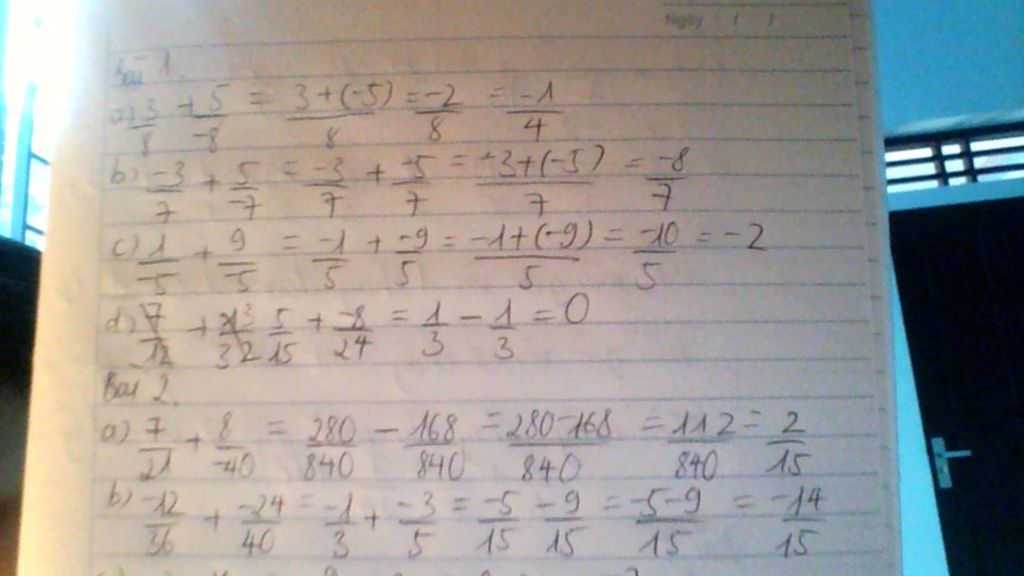 Ngày / /
Bài 1.
a) 3/8 + 5/-8 = 3+(-5)/8 = -2/8 = -1/4
b) -3/7 + 5/-7 = -3/7 + -5/7 = -3+(-5)/7 = -8/7
c) 1/-5 + 9/-5 = -1/5 + -9/5 = -1+(-9)/5 = -10/5 = -2
d) 5/15 + -8/24 = 1/3 - 1/3 = 0
Bài 2.
a) 7/21 + 8/-40 = 280/840 - 168/840 = 280-168/840 = 112/840 = 2/15
b) -12/36 + -24/40 = -1/3 + -3/5 = -5/15 - 9/15 = -5-9/15 = -14/15